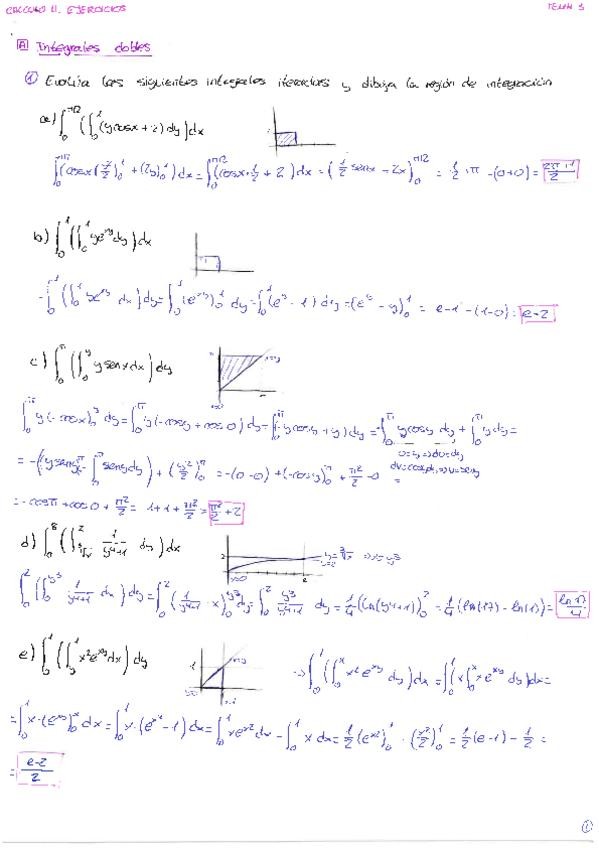 CALCULO II. EJERCICIOS TEMA 3
A Integrales dobles
① Evalúa las siguientes integrales iteradas y dibuja la región de integración
a) ∫_0^{π/2} (∫_0^1 (y cosx + 2) dy) dx
∫_0^{π/2} (cosx (y²/2)_0^1 + (2y)_0^1) dx = ∫_0^{π/2} (cosx · 1/2 + 2) dx = (1/2 senx - 2x)_0^{π/2} = 1/2 · π - (0+0) = (2π+1)/2
b) ∫_0^1 (∫_0^1 y e^{xy} dy) dx
∫_0^1 (∫_0^1 y e^{xy} dx) dy = ∫_0^1 (e^{xy})_0^1 dy = ∫_0^1 (e^y - 1) dy = (e^y - y)_0^1 = e-1-(1-0) = e-2
c) ∫_0^π (∫_0^y y senx dx) dy
∫_0^π y (-cosx)_0^y dy = ∫_0^π y (-cosy + cos0) dy = ∫_0^π (-y cosy + y) dy = -∫_0^π y cosy dy + ∫_0^π y dy =
= -((y seny)_0^π - ∫_0^π seny dy) + (y²/2)_0^π = -(0-0) + (-cosy)_0^π + π²/2 - 0 =
= -cosπ + cos0 + π²/2 = 1+1+π²/2 = π²/2 + 2
d) ∫_0^8 (∫_{∛x}^2 1/(y⁴+1) dy) dx
2 y=∛x ⇒ x=y³
∫_0^2 (∫_0^{y³} 1/(y⁴+1) dx) dy = ∫_0^2 (1/(y⁴+1) · x)_0^{y³} dy = ∫_0^2 y³/(y⁴+1) dy = 1/4 (ln(y⁴+1))_0^2 = 1/4 (ln(17) - ln(1)) = ln17/4
e) ∫_0^1 (∫_y^1 x² e^{xy} dx) dy → ∫_0^1 (∫_0^x x² e^{xy} dy) dx = ∫_0^1 (x ∫_0^x x e^{xy} dy) dx =
= ∫_0^1 x · (e^{xy})_0^x dx = ∫_0^1 x · (e^{x²} - 1) dx = ∫_0^1 x e^{x²} dx - ∫_0^1 x dx = 1/2 (e^{x²})_0^1 - (x²/2)_0^1 = 1/2 (e-1) - 1/2 =
= (e-2)/2
①